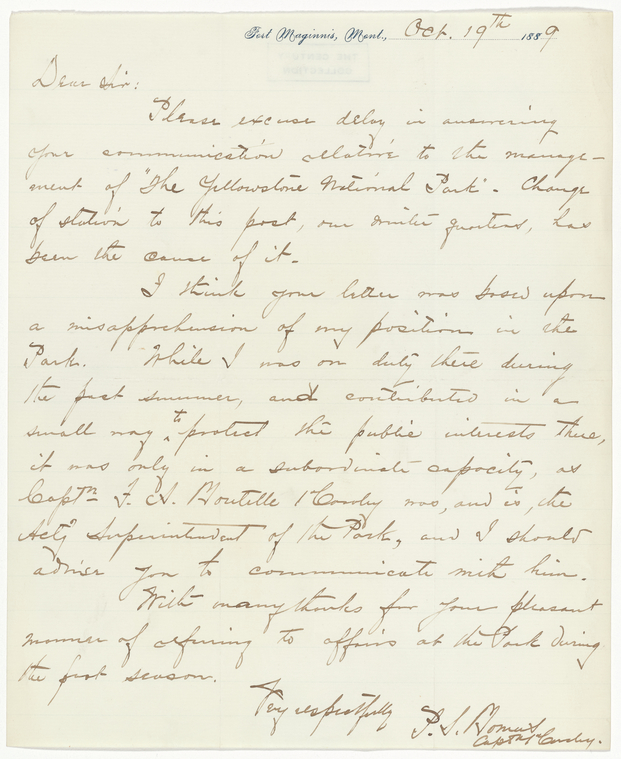 Fort Maginnis, Mont., Oct. 19th 1889
Dear Sir:
Please excuse delay in answering
your communication relative to the manage-
ment of "The Yellowstone National Park". Change
of station to this post, our winter quarters, has
been the cause of it.
I think your letter was based upon
a misapprehension of my position in the
Park. While I was on duty there during
the past summer, and contributed in a
small way to protect the public interests there,
it was only in a subordinate capacity, as
Captn F. A. Boutelle 1st Cavalry was, and is, the
Actg Superintendent of the Park, and I should
advise you to communicate with him.
With many thanks for your pleasant
manner of referring to affairs at the Park during
the past season.
Very respectfully
P. S. Bomus
Captn 1st Cavalry.